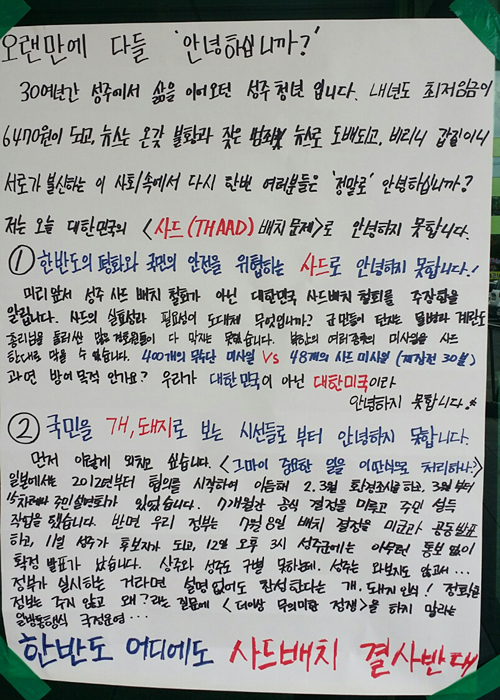 오랜만에 다들 '안녕하십니까?'
30여년간 성주에서 삶을 이어오던 성주청년 입니다. 내년도 최저임금이
6470원이 되고, 뉴스는 온갖 불황과 잦은 범죄 뉴스로 도배되고, 비리니 갑질이니
서로가 불신하는 이 사회속에서 다시 한번 여러분들은 '정말로' 안녕하십니까?
저는 오늘 대한민국의 <사드(THAAD) 배치 문제>로 안녕하지 못합니다.
① 한반도의 평화와 국민의 안전을 위협하는 사드로 안녕하지 못합니다!
미리 앞서 성주 사드 배치 철회가 아닌 대한민국 사드배치 철회를 주장함을
알립니다. 사드의 실효성과 필요성이 도대체 무엇입니까? 군민들이 던지는 물병과 계란도
총리님을 둘러싼 많은 경호원들이 다 막지는 못했습니다. 북한의 여러종류의 미사일을 사드
한대로 막을 수 없습니다. 400개의 무수단 미사일 VS 48개의 사드 미사일 (재장전 30분)
과연 방어 목적 인가요? 우리가 대한민국이 아닌 대한미국이라
안녕하지 못합니다.
② 국민을 개, 돼지로 보는 시선들로 부터 안녕하지 못합니다.
먼저 이렇게 외치고 싶습니다. <그마이 중요한 일을 이딴식으로 처리하나?>
일본에서는 2012년부터 협의를 시작하여 이듬해 2.3월 환경조사를하고, 3월부터
15차례나 주민설명회가 있었습니다. 7개월간 공식 결정을 미루고 주민 설득
작업을 했습니다. 반면 우리 정부는 7월 8일 배치 결정을 미군과 공동발표
하고, 11일 성주가 후보지가 되고, 12일 오후 3시 성주군에는 아무런 통보 없이
확정 발표가 났습니다. 상주와 성주도 구별 못하는데. 성주는 와보지도 않고서...
정부가 실시하는 거라면 설명 없어도 찬성한다는 개, 돼지 인식! 정확한
정보는 주지 않고 왜? 라는 질문에 <더이상 무의미한 정쟁>을 하지 말라는
일방통행식 국정운영...
한반도 어디에도 사드배치 결사반대